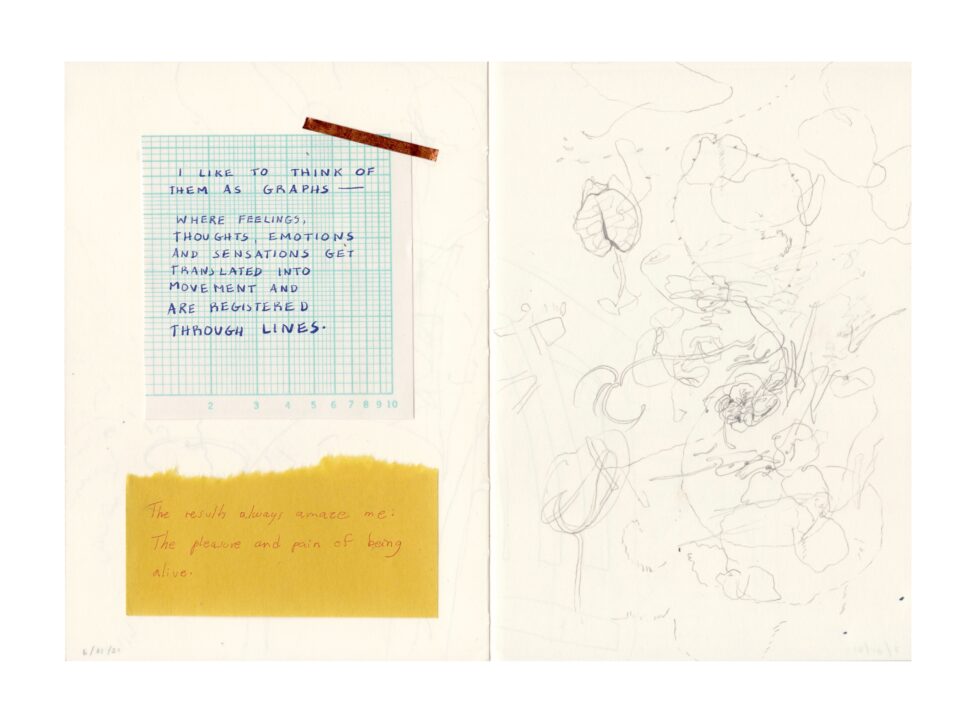 I LIKE TO THINK OF
THEM AS GRAPHS —
WHERE FEELINGS,
THOUGHTS, EMOTIONS
AND SENSATIONS GET
TRANSLATED INTO
MOVEMENT AND
ARE REGISTERED
THROUGH LINES.
2 3 4 5 6 7 8 9 10
The results always amaze me:
The pleasure and pain of being
alive.